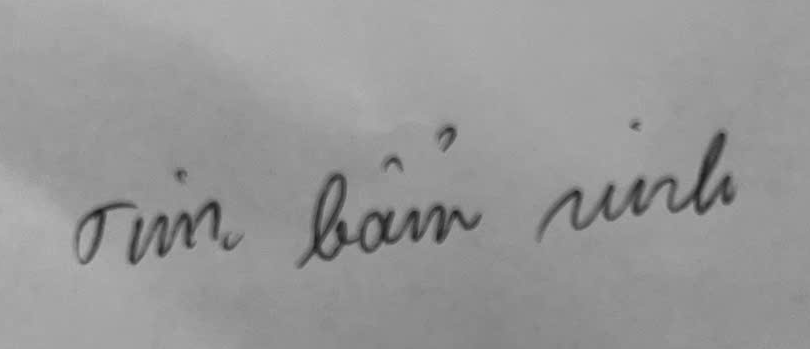 Tim bẩm sinh